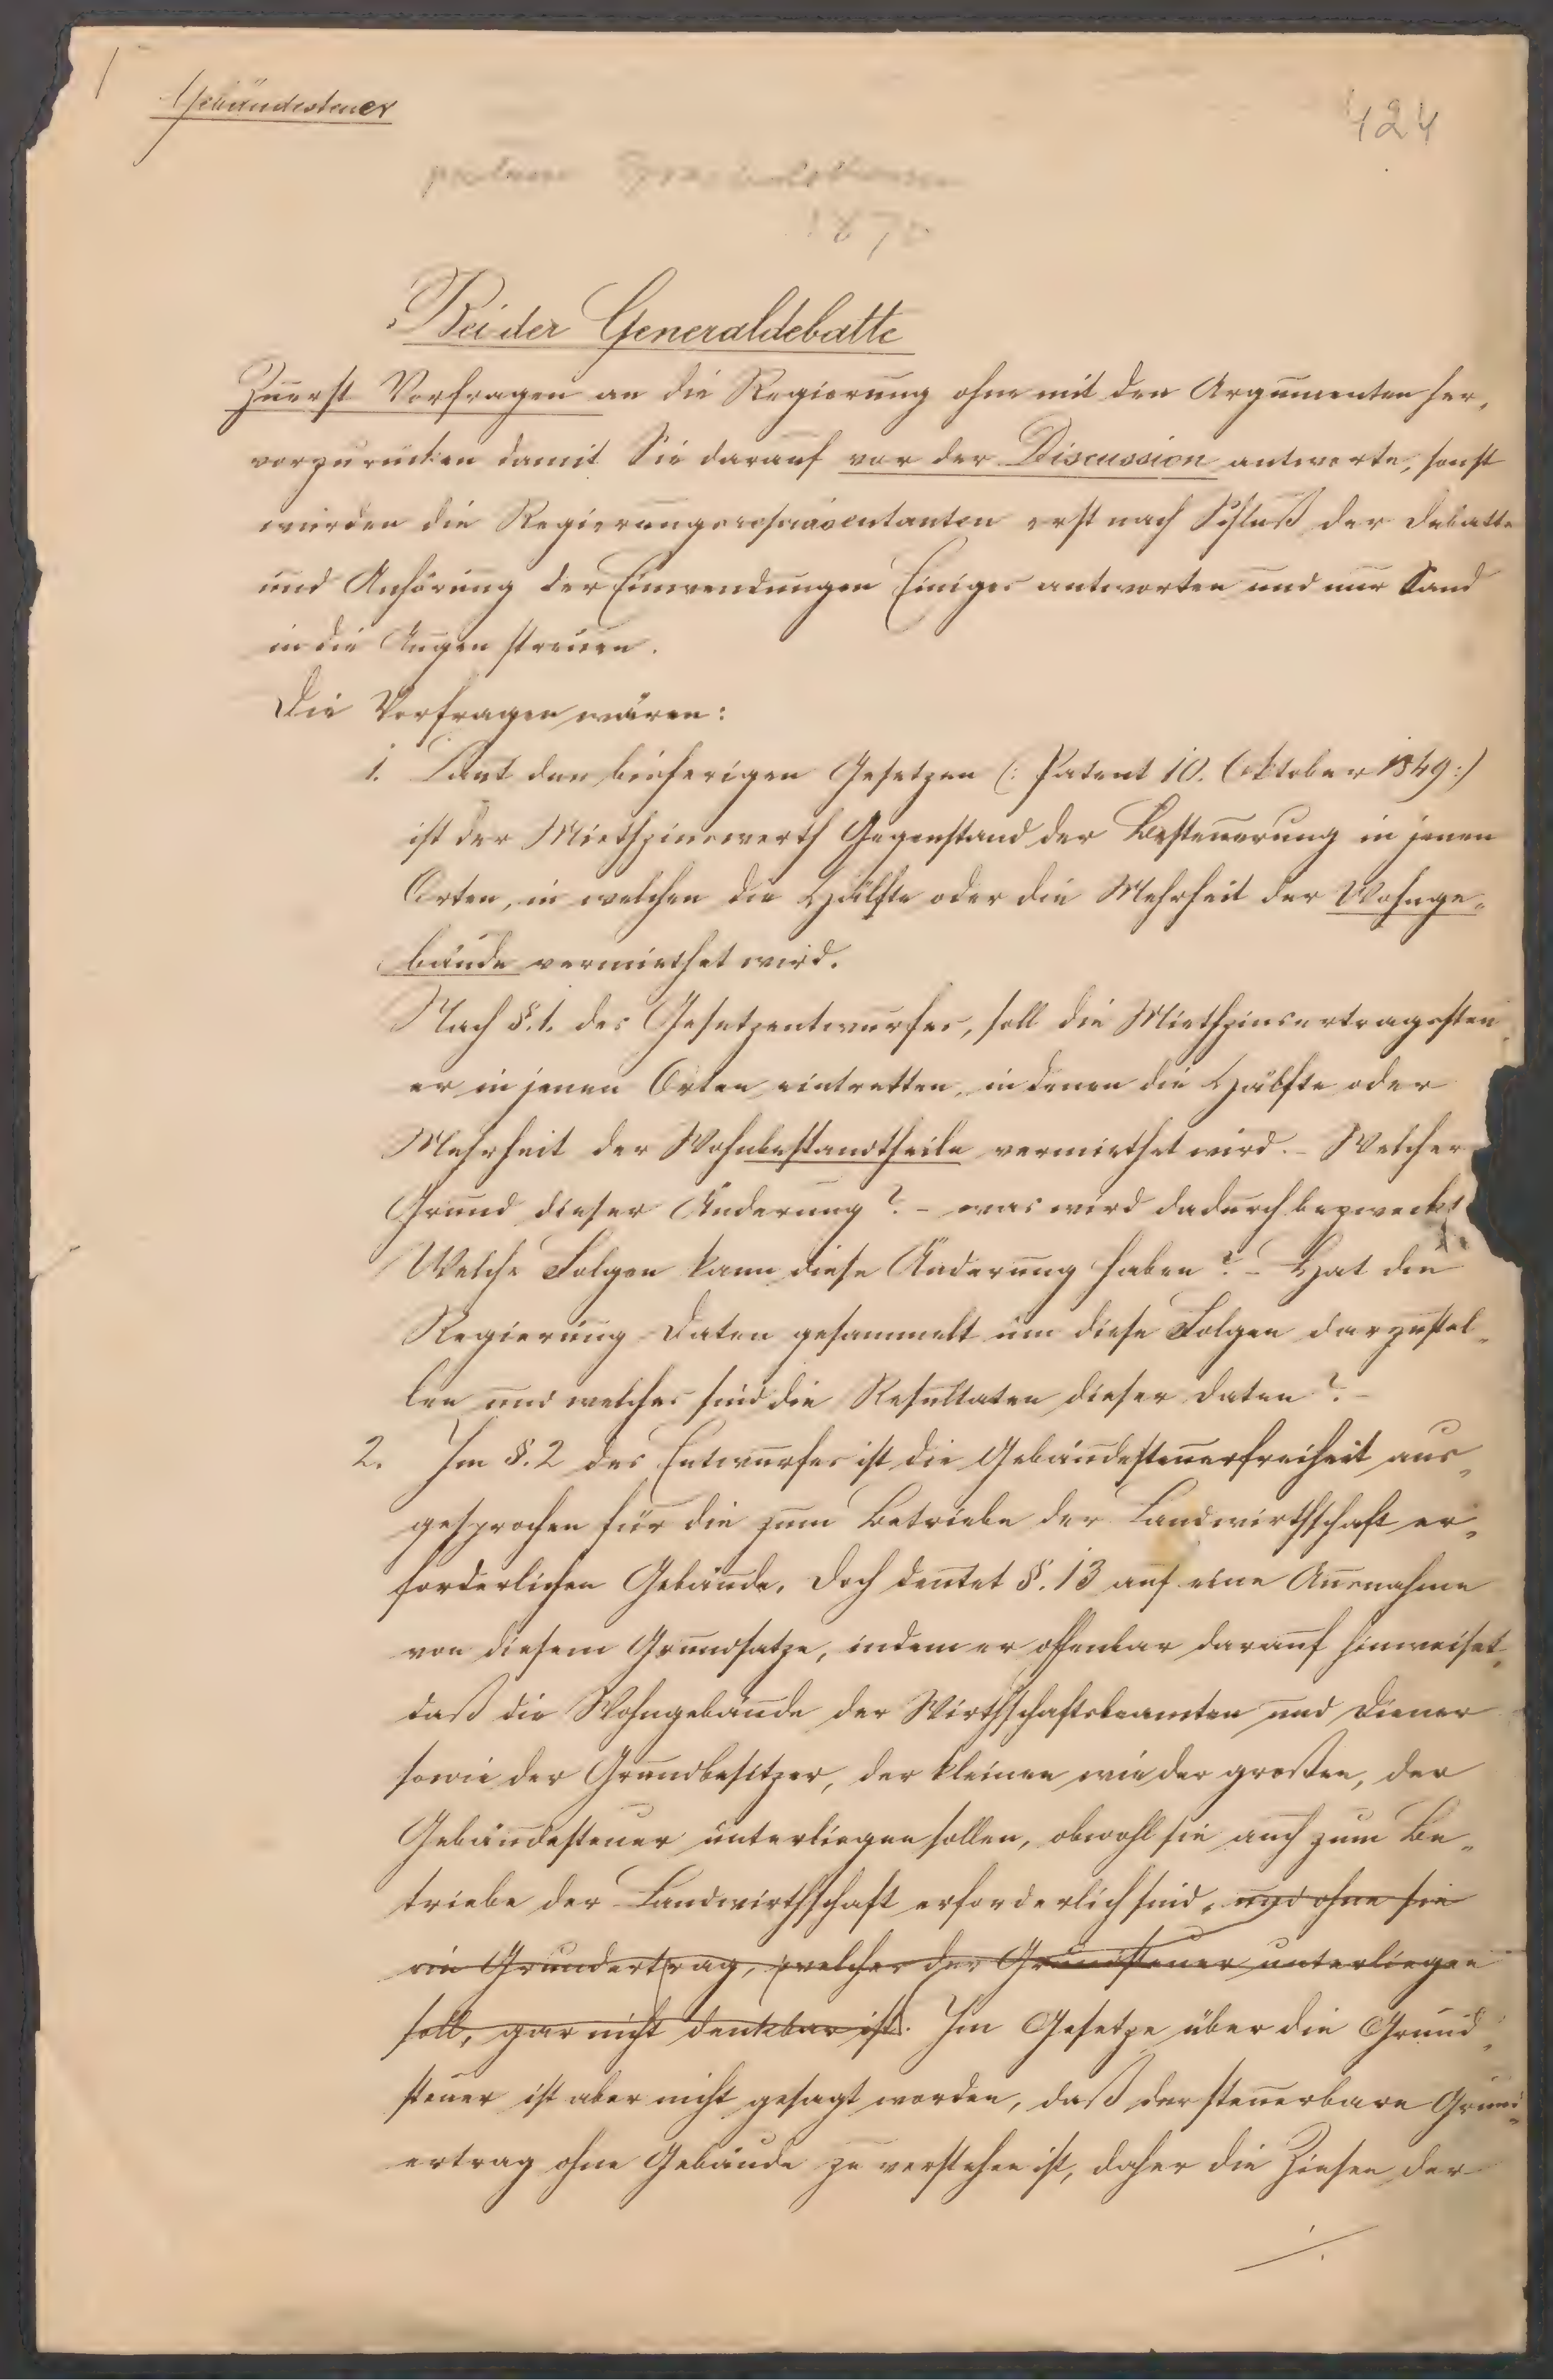 Gebäudesteuer
424
1870
Bei der Generaldebatte
Zuerst Vorfragen an die Regierung ohne mit den Argumenten her„
vorzurücken damit Sie darauf vor der Discussion antworte, sonst
würden die Regierungsrepräsentanten erst nach Schluß der Debatte
und Anhörung der Einwendungen Einiges antworten und nur Sand
in die Augen streuen.
Die Vorfragen wären:
1. Laut den bisherigen Gesetzen (: Patent 10. Oktober 1849:)
ist der Miethzinswerth Gegenstand der Besteuerung in jenen
Orten, in welchen die Hälfte oder die Mehrheit der Wohnge„
bäude vermiethet wird.
Nach §. 1. des Gesetzentwurfes, soll die Miethzinsertragssteu„
er in jenen Orten eintretten, in denen die Hälfte oder
Mehrheit der Wohnbestandtheile vermiethet wird. – Welcher
Grund dieser Änderung? – was wird dadurch bezweckt
Welche Folgen kann diese Änderung haben? – Hat die
Regierung Daten gesammelt um diese Folgen darzustel„
len und welches sind die Resultaten dieser Daten? –
2. Im §. 2 des Entwurfes ist die Gebäudesteuerfreiheit aus„
gesprochen für die zum Betriebe der Landwirthschaft er„
forderlichen Gebäude. Doch deutet §. 13 auf eine Ausnahme
von diesem Grundsatze, indem er offenbar darauf hinweiset,
daß die Wohngebäude der Wirthschaftsbeamten und Diener
sowie der Grundbesitzer, der kleinen wie der großen, der
Gebäudesteuer unterliegen sollen, obwohl sie auch zum Be„
triebe der Landwirthschaft erforderlich sind, und ohne sie
ein Grundertrag, welcher der Grundsteuer unterliegen
soll, gar nicht denkbar ist. Im Gesetze über die Grund„
steuer ist aber nicht gesagt worden, daß der steuerbare Grund„
ertrag ohne Gebäude zu verstehen ist, daher die Zinsen der
./.